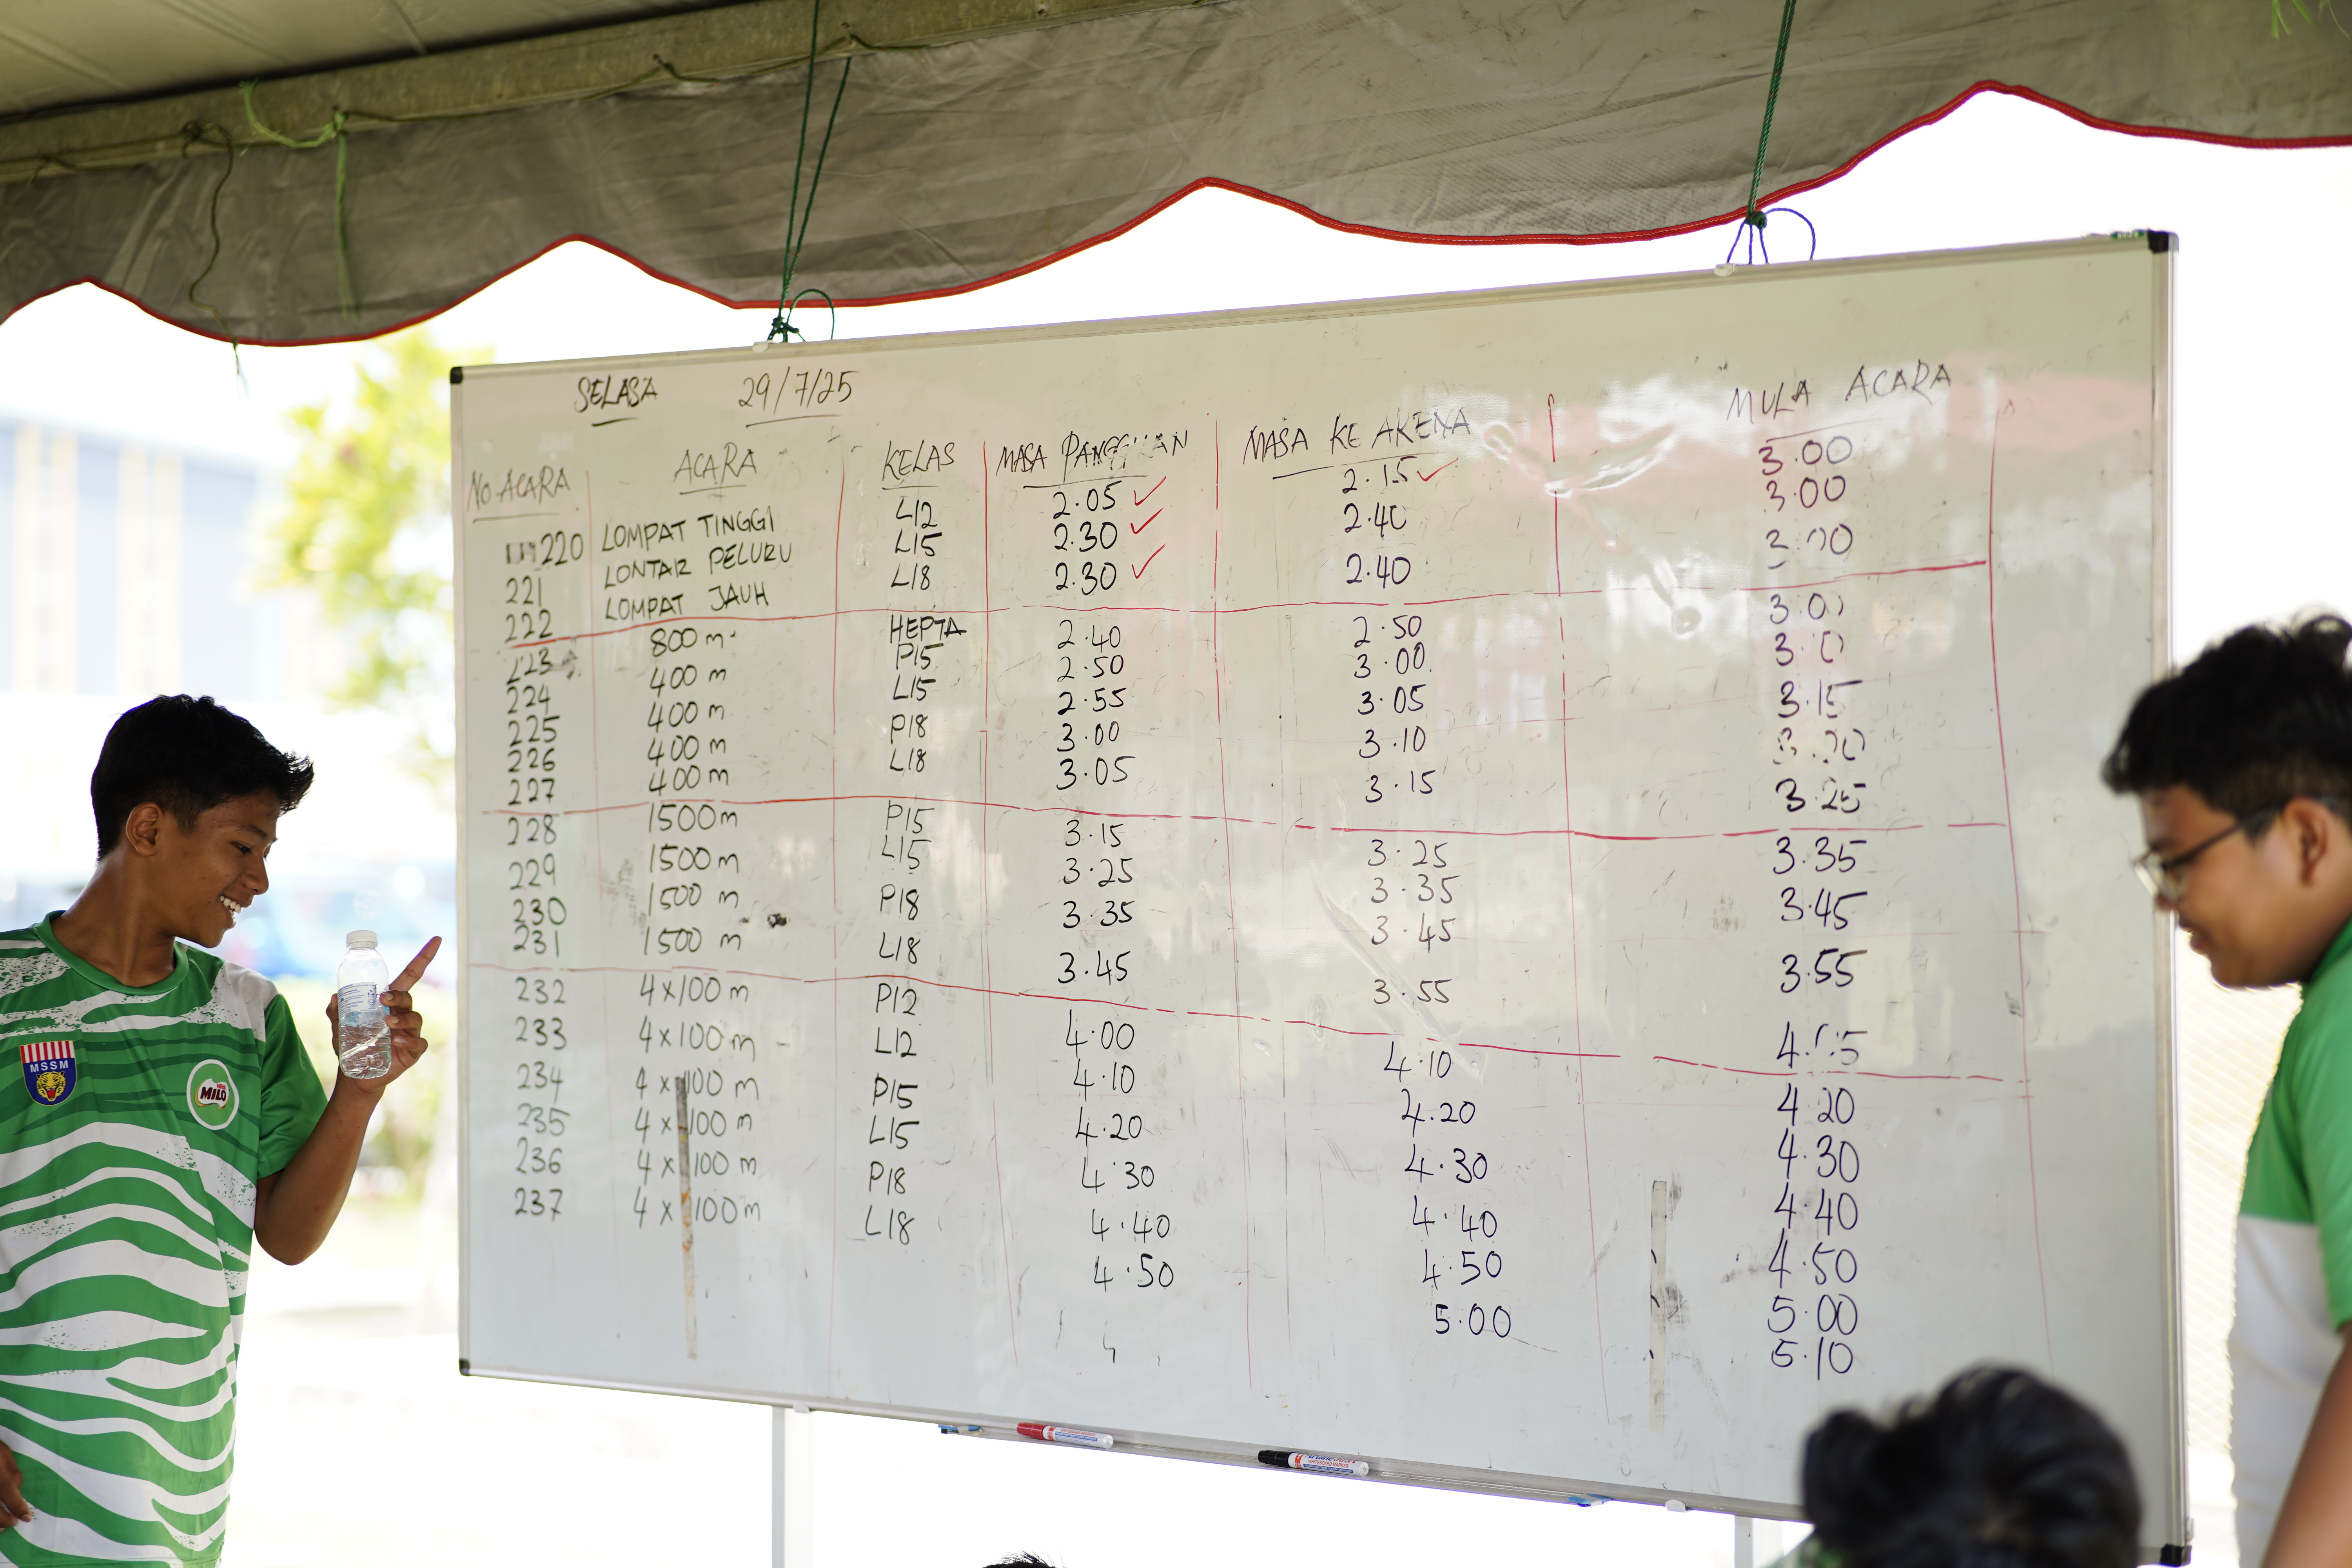 SELASA 29/7/25
NO ACARA ACARA KELAS MASA PANGGILAN MASA KE ARENA MULA ACARA
220 LOMPAT TINGGI L12 2.05 ✓ 2.15 ✓ 3.00
221 LONTAR PELURU L15 2.30 ✓ 2.40 3.00
222 LOMPAT JAUH L18 2.30 ✓ 2.40
223 800 m HEPTA 2.40 2.50
224 400 m P15 2.50 3.00
225 400 m L15 2.55 3.05 3.15
226 400 m P18 3.00 3.10
227 400 m L18 3.05 3.15 3.25
228 1500 m P15 3.15 3.25 3.35
229 1500 m L15 3.25 3.35 3.45
230 1500 m P18 3.35 3.45 3.55
231 1500 m L18 3.45 3.55
232 4 x 100 m P12 4.00 4.10 4.20
233 4 x 100 m L12 4.10 4.20 4.30
234 4 x 100 m P15 4.20 4.30 4.40
235 4 x 100 m L15 4.30 4.40 4.50
236 4 x 100 m P18 4.40 4.50 5.00
237 4 x 100 m L18 4.50 5.00 5.10
MSSM
MILO